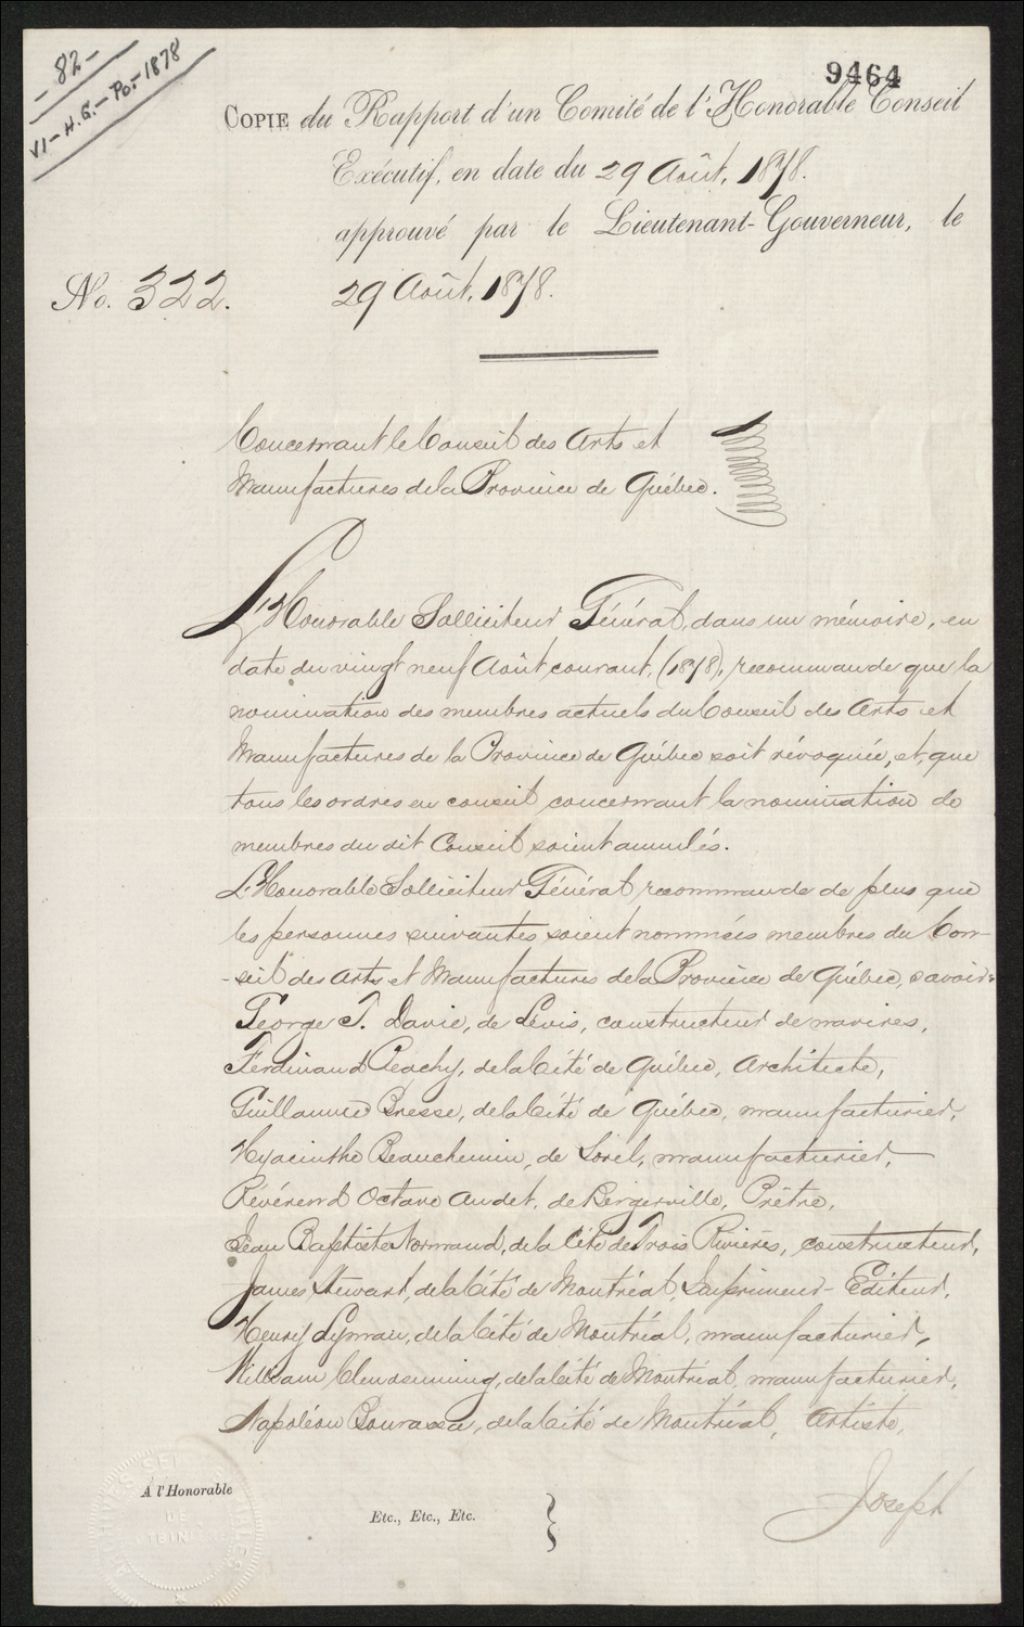 - 82 -
VI - H.G. - Po. - 1878
9464
COPIE du Rapport d'un Comité de l'Honorable Conseil
Exécutif, en date du 29 Août, 1878.
approuvé par le Lieutenant-Gouverneur, le
No. 322. 29 Août, 1878.
Concernant le Conseil des Arts et
Manufactures de la Province de Québec.
L'Honorable Solliciteur Général, dans un mémoire, en
date du vingt neuf Août courant, (1878), recommande que la
nomination des membres actuels du Conseil des Arts et
Manufactures de la Province de Québec soit révoquée, et, que
tous les ordres en conseil concernant la nomination de
membres du dit Conseil soient annulés.
L'Honorable Solliciteur Général recommande de plus que
les personnes suivantes soient nommées membres du Con-
-seil des Arts et Manufactures de la Province de Québec, savoir:
George T. Davie, de Lévis, constructeur de navires,
Ferdinand Peachy, de la Cité de Québec, Architecte,
Guillaume Bresse, de la Cité de Québec, manufacturier,
Hyacinthe Beauchemin, de Sorel, manufacturier,
Révérend Octave Audet, de Bergerville, Prêtre,
Jean Baptiste Normand, de la Cité de Trois Rivières, constructeur,
James Stewart, de la Cité de Montréal, Imprimeur-Editeur,
Henry Lyman, de la Cité de Montréal, manufacturier,
William Clendinning, de la Cité de Montréal, manufacturier,
Napoléon Bourassa, de la Cité de Montréal, Artiste,
Joseph
A l'Honorable
Etc., Etc., Etc.